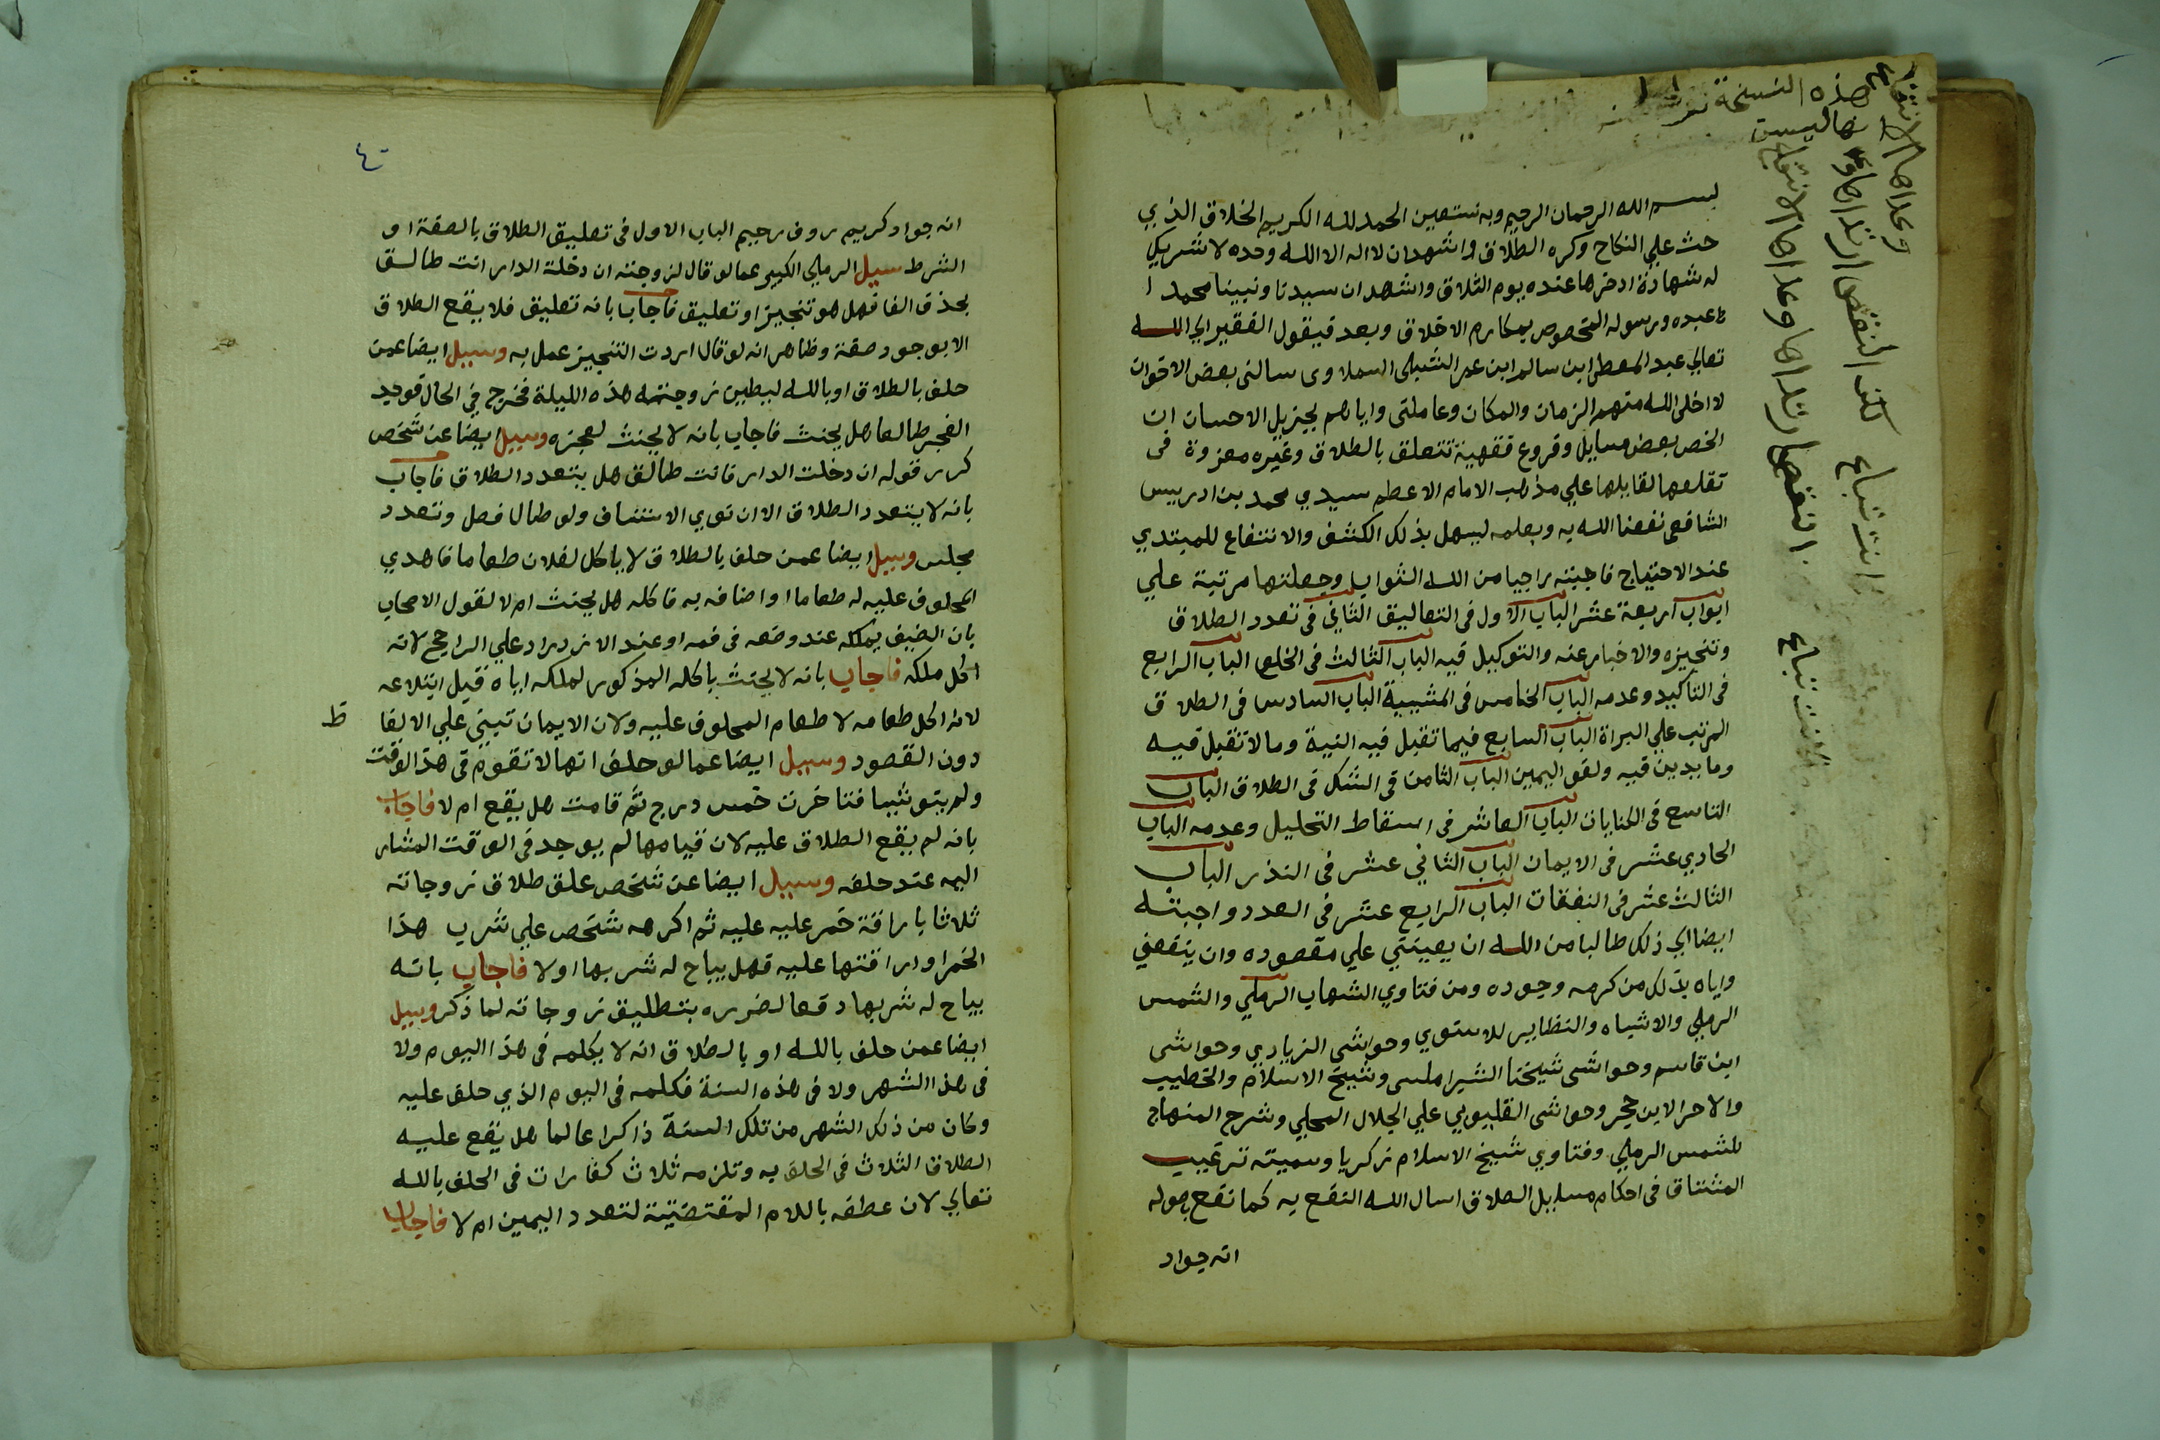 بسم الله الرحمان الرحيم وبه نستعين الحمد لله الكريم الخلاق الذي
حث علي النكاح وكره الطلاق واشهد ان لا اله الا الله وحده لا شريك
له شهادة ادخرها عنده يوم التلاق واشهد ان سيدنا ونبينا محمد ا
عبده ورسوله المخصوص بمكارم الاخلاق وبعد فيقول الفقير الي الله
تعالي عبد المعطي ابن سالم ابن عمر الشبلي السملاوي سالني بعض الاخوان
لا اخلى الله منهم الزمان والمكان وعاملني واياهم بجزيل الاحسان ان
الخص بعض مسايل وفروع فقهية تتعلق بالطلاق وغيره معزوة في
نقلها لقايلها علي مذهب الامام الاعظم سيدي محمد بن ادريس
الشافعي نفعنا الله به وبعلمه ليسهل بذلك الكشف والانتفاع للمبتدي
عند الاحتياج فاجبته راجيا من الله الثواب وجعلتها مرتبة علي
ابواب اربعة عشر الباب الاول في التعاليق الثاني في تعدد الطلاق
وتنجيزه والاخبار عنه والتوكيل فيه الباب الثالث في الخلع الباب الرابع
في التاكيد وعدمه الباب الخامس في المشيية الباب السادس في الطلاق
المرتب علي البراة الباب السابع فيما تقبل فيه النية وما لا تقبل فيه
وما يدين فيه ولغو اليمين الباب الثامن في الشك في الطلاق الباب
التاسع في الكنايات الباب العاشر في اسقاط التحليل وعدمه الباب
الحادي عشر في الايمان الباب الثاني عشر في النذر الباب
الثالث عشر في النفقات الباب الرابع عشر في العدد واجبته
ايضا الي ذلك طالبا من الله ان يعينني علي مقصوده وان ينفعني
واياه بذلك من كرمه وجوده ومن فتاوي الشهاب الرملي والشمس
الرملي والاشباه والنظاير للاسنوي وحواشي الزيادي وحواشي
ابن قاسم وحواشي شيخنا الشبراملسي وشيخ الاسلام والخطيب
والاحرالابن حجر وحواشي القليوبي علي الجلال المحلي وشرح المنهاج
للشمس الرملي وفتاوي شيخ الاسلام زكريا وسميته ترغيب
المشتاق في احكام مسايل الطلاق اسال الله النفع به كما نفع بصوله
انه جواد
هذه النسخة
انه جواد كريم روف رحيم الباب الاول في تعليق الطلاق بالصفة او
الشرط سيل الرملي الكبير عما لو قال لزوجته ان دخلت الدار انت طالق
بحذف الفا فهل هو تنجيز او تعليق فاجاب بانه تعليق فلا يقع الطلاق
الا بوجود صفة وظاهر انه لو قال اردت التنجيز عمل به وسيل ايضا عمن
حلف بالطلاق او بالله ليطين زوجته هذه الليلة فخرج في الحال فوجد
الفجر طالعا هل يحنث فاجاب بانه لا يحنث لعجزه وسيل ايضا عن شخص
كرر قوله ان دخلت الدار فانت طالق هل يتعدد الطلاق فاجاب
بانه لا يتعدد الطلاق الا ان نوي الاستيناف ولو طال فصل وتعدد
مجلس وسيل ايضا عمن حلف بالطلاق لا ياكل لفلان طعاما فاهدي
المحلوف عليه له طعاما او اضافه به فاكله هل يحنث ام لا لقول الاصحاب
بان الضيف يملكه عند وضعه في فمه او عند الازدراد علي الراجح لانه
اكل ملكه فاجاب بانه لا يحنث باكله المذكور لملكه اياه قبل ابتلاعه
لانه اكل طعامه لا طعام المحلوف عليه ولان الايمان تبني علي الالفا
ظ
دون القصود وسيل ايضا عما لو حلف انها لا تقوم في هذا الوقت
ولم ينو شيا فتاخرت خمس درج ثم قامت هل يقع ام لا فاجاب
بانه لم يقع الطلاق عليه لان قيامها لم يوجد في الوقت المشار
اليه عند حلفه وسيل ايضا عن شخص علق طلاق زوجاته
ثلاثا باراقة خمر عليه عليه ثم اكرهه شخص علي شرب هذا
الخمر او اراقتها عليه فهل يباح له شربها اولا فاجاب بانه
يباح له شربها دفعا لضرره بتطليق زوجاته لما ذكر وسيل
ايضا عمن حلف بالله او بالطلاق انه لا يكلمه في هذا اليوم ولا
في هذا الشهر ولا في هذه السنة فكلمه في اليوم الذي حلف عليه
وكان من ذلك الشهر من تلك السنة ذاكرا عالما هل يقع عليه
الطلاق الثلاث في الحلف به وتلزمه ثلاث كفارات في الحلف بالله
تعالي لان عطفه باللام المقتضيتة لتعدد اليمين ام لا فاجاب